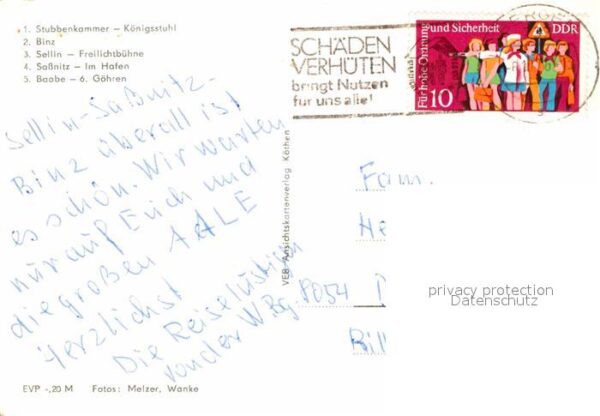 1. Stubbenkammer – Königsstuhl
2. Binz
3. Sellin – Freilichtbühne
4. Saßnitz – Im Hafen
5. Baabe – 6. Göhren
SCHÄDEN
VERHÜTEN
bringt Nutzen
für uns alle!
Für hohe Ordnung
und Sicherheit
DDR
10
Sellin-Saßnitz-
Binz überall ist
es schön. Wir warten
nur auf Euch und
die großen AALE
Herzlichst
Die Reiselustigen
von der W.Bg.
VEB Ansichtskartenverlag Köthen
Fam.
He
8054 D
privacy protection
Datenschutz
EVP -,20 M Fotos: Melzer, Wanke